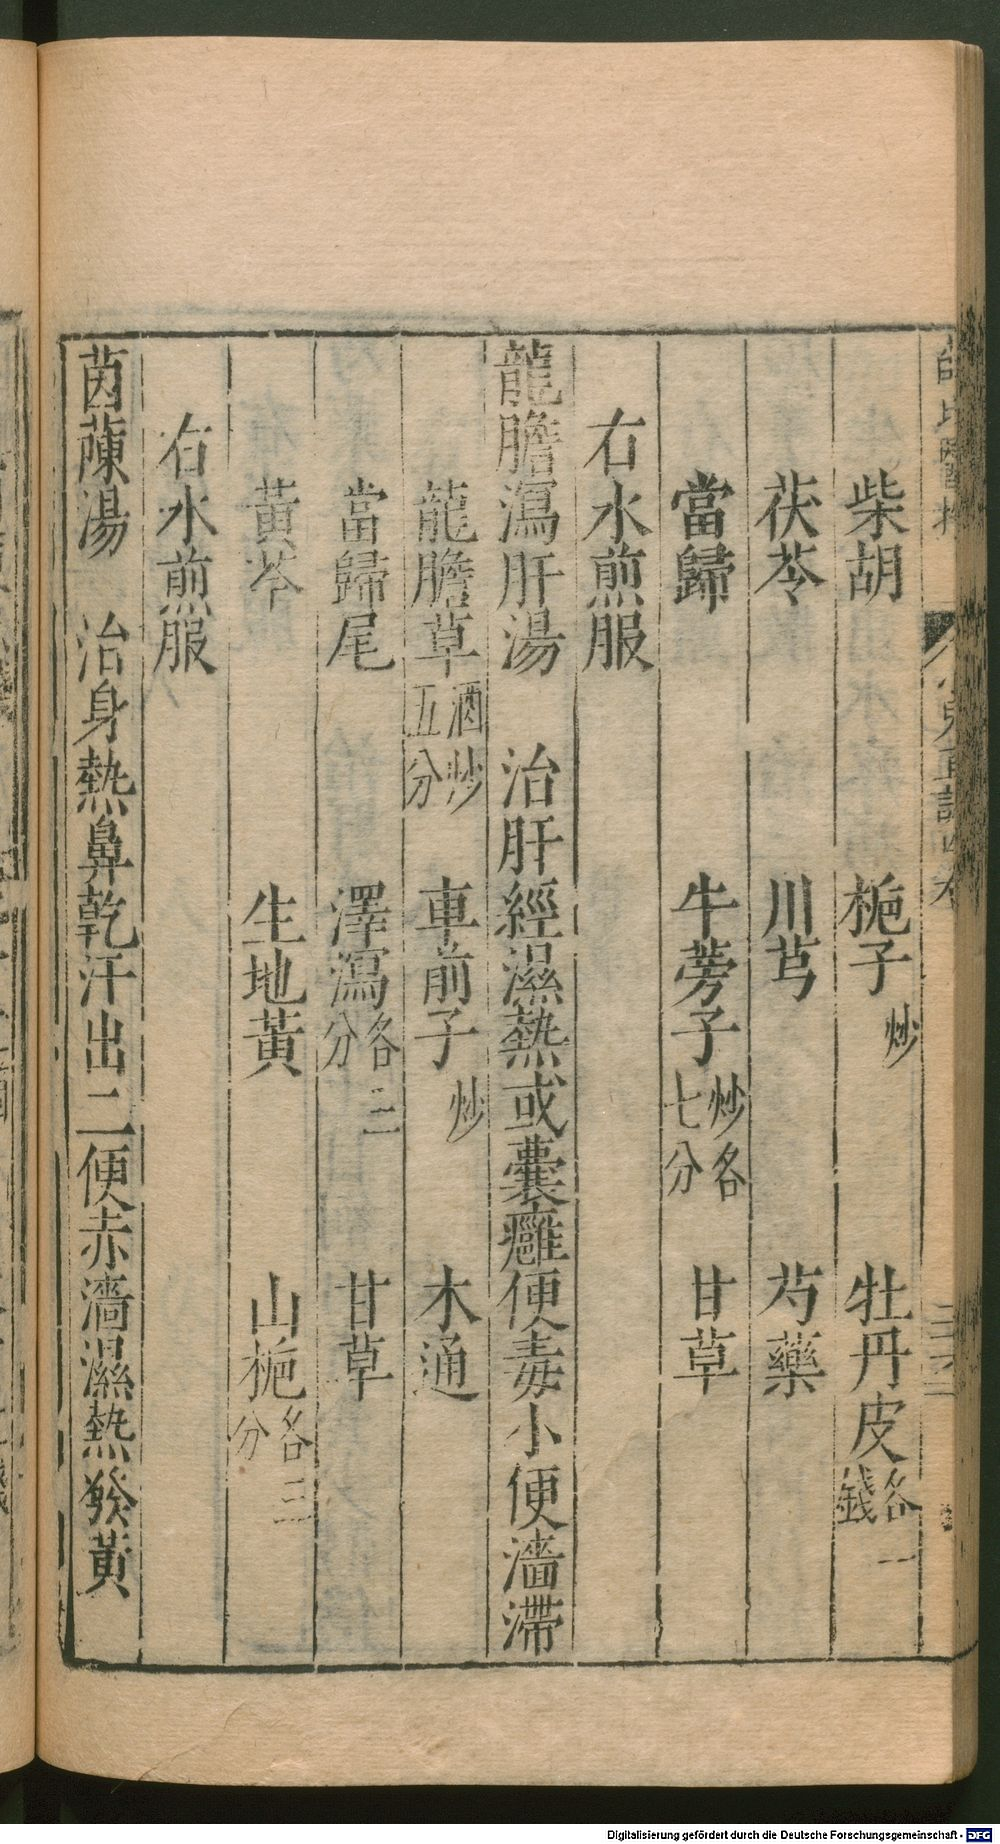 柴胡　梔子炒　牡丹皮各一錢
茯苓　川芎　芍藥
當歸　牛蒡子炒各七分　甘草
右水煎服
龍膽瀉肝湯　治肝經濕熱或囊癰便毒小便濇滯
龍膽草酒炒五分　車前子炒　木通
當歸尾　澤瀉各二分　甘草
黃芩　生地黃　山梔各三分
右水煎服
茵蔯湯　治身熱鼻乾汗出二便赤濇濕熱發黃
Digitalisierung gefördert durch die Deutsche Forschungsgemeinschaft - DFG